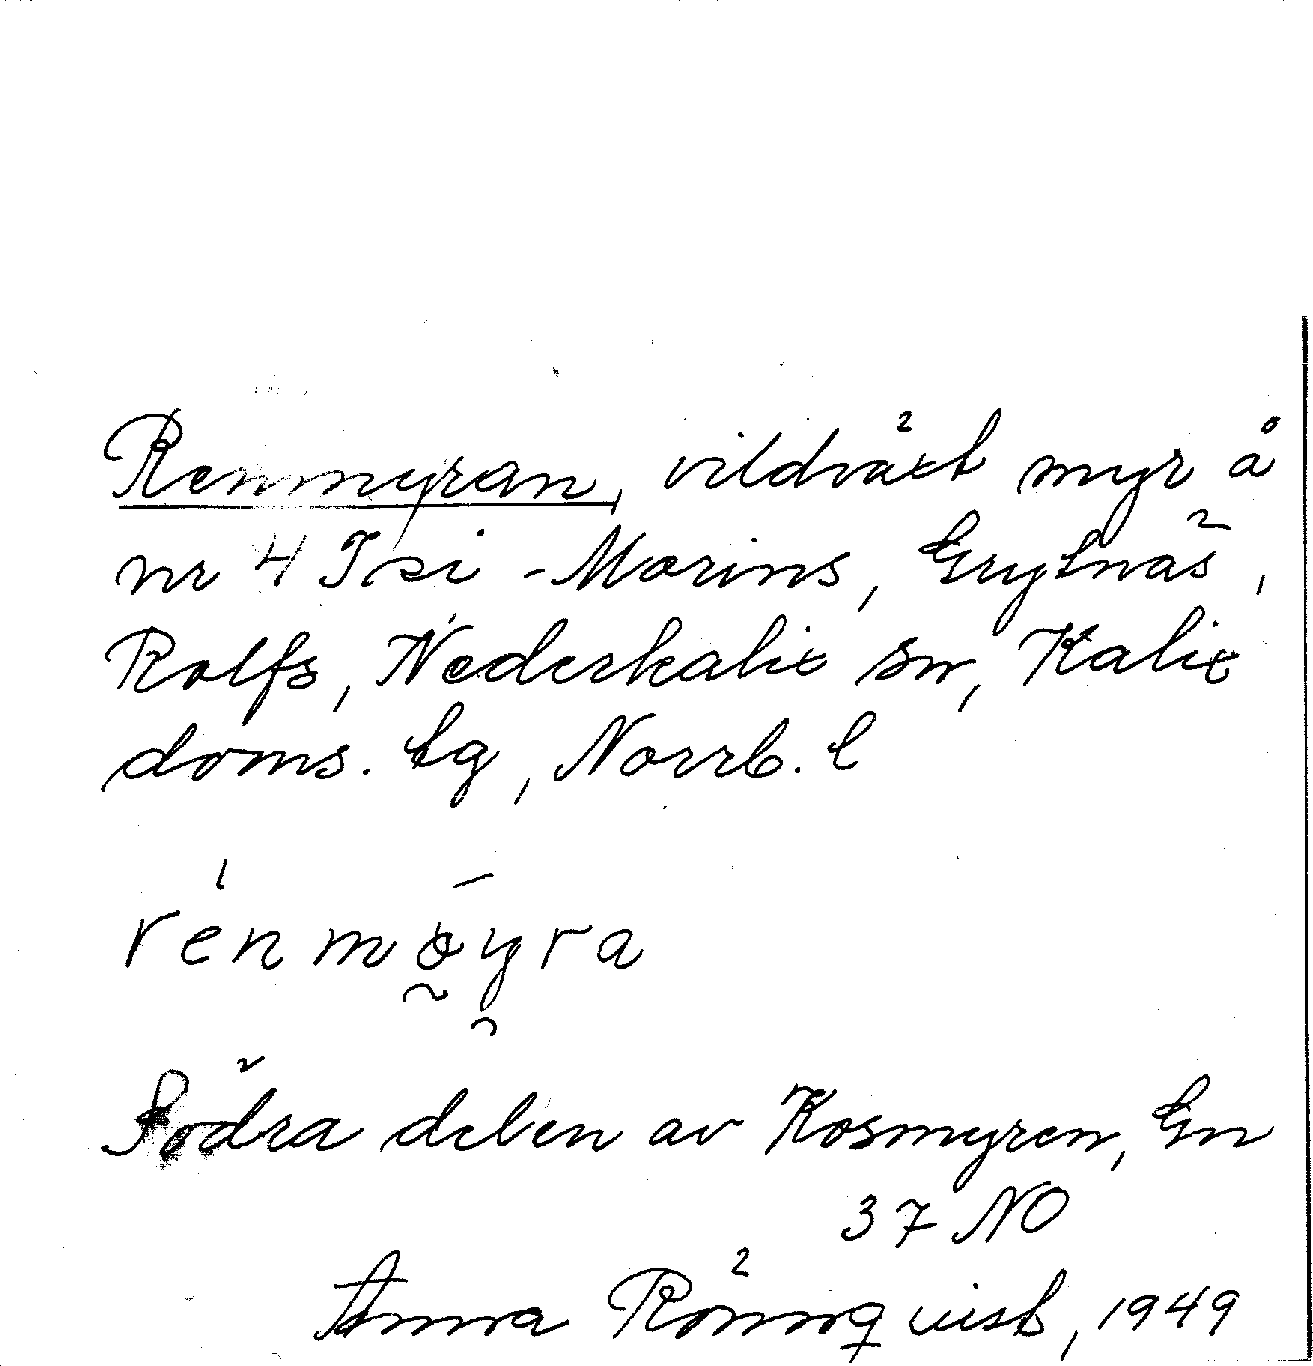 Renmyran, vildväxt myr å
nr 4 Isi-Morins, Grytnäs,
Rolfs, Nederkalix sn, Kalix
doms. lg, Norrb. l
rénmöyra
Södra delen av Kosmyren, Gn
37 NO
Anna Rönnqvist, 1949